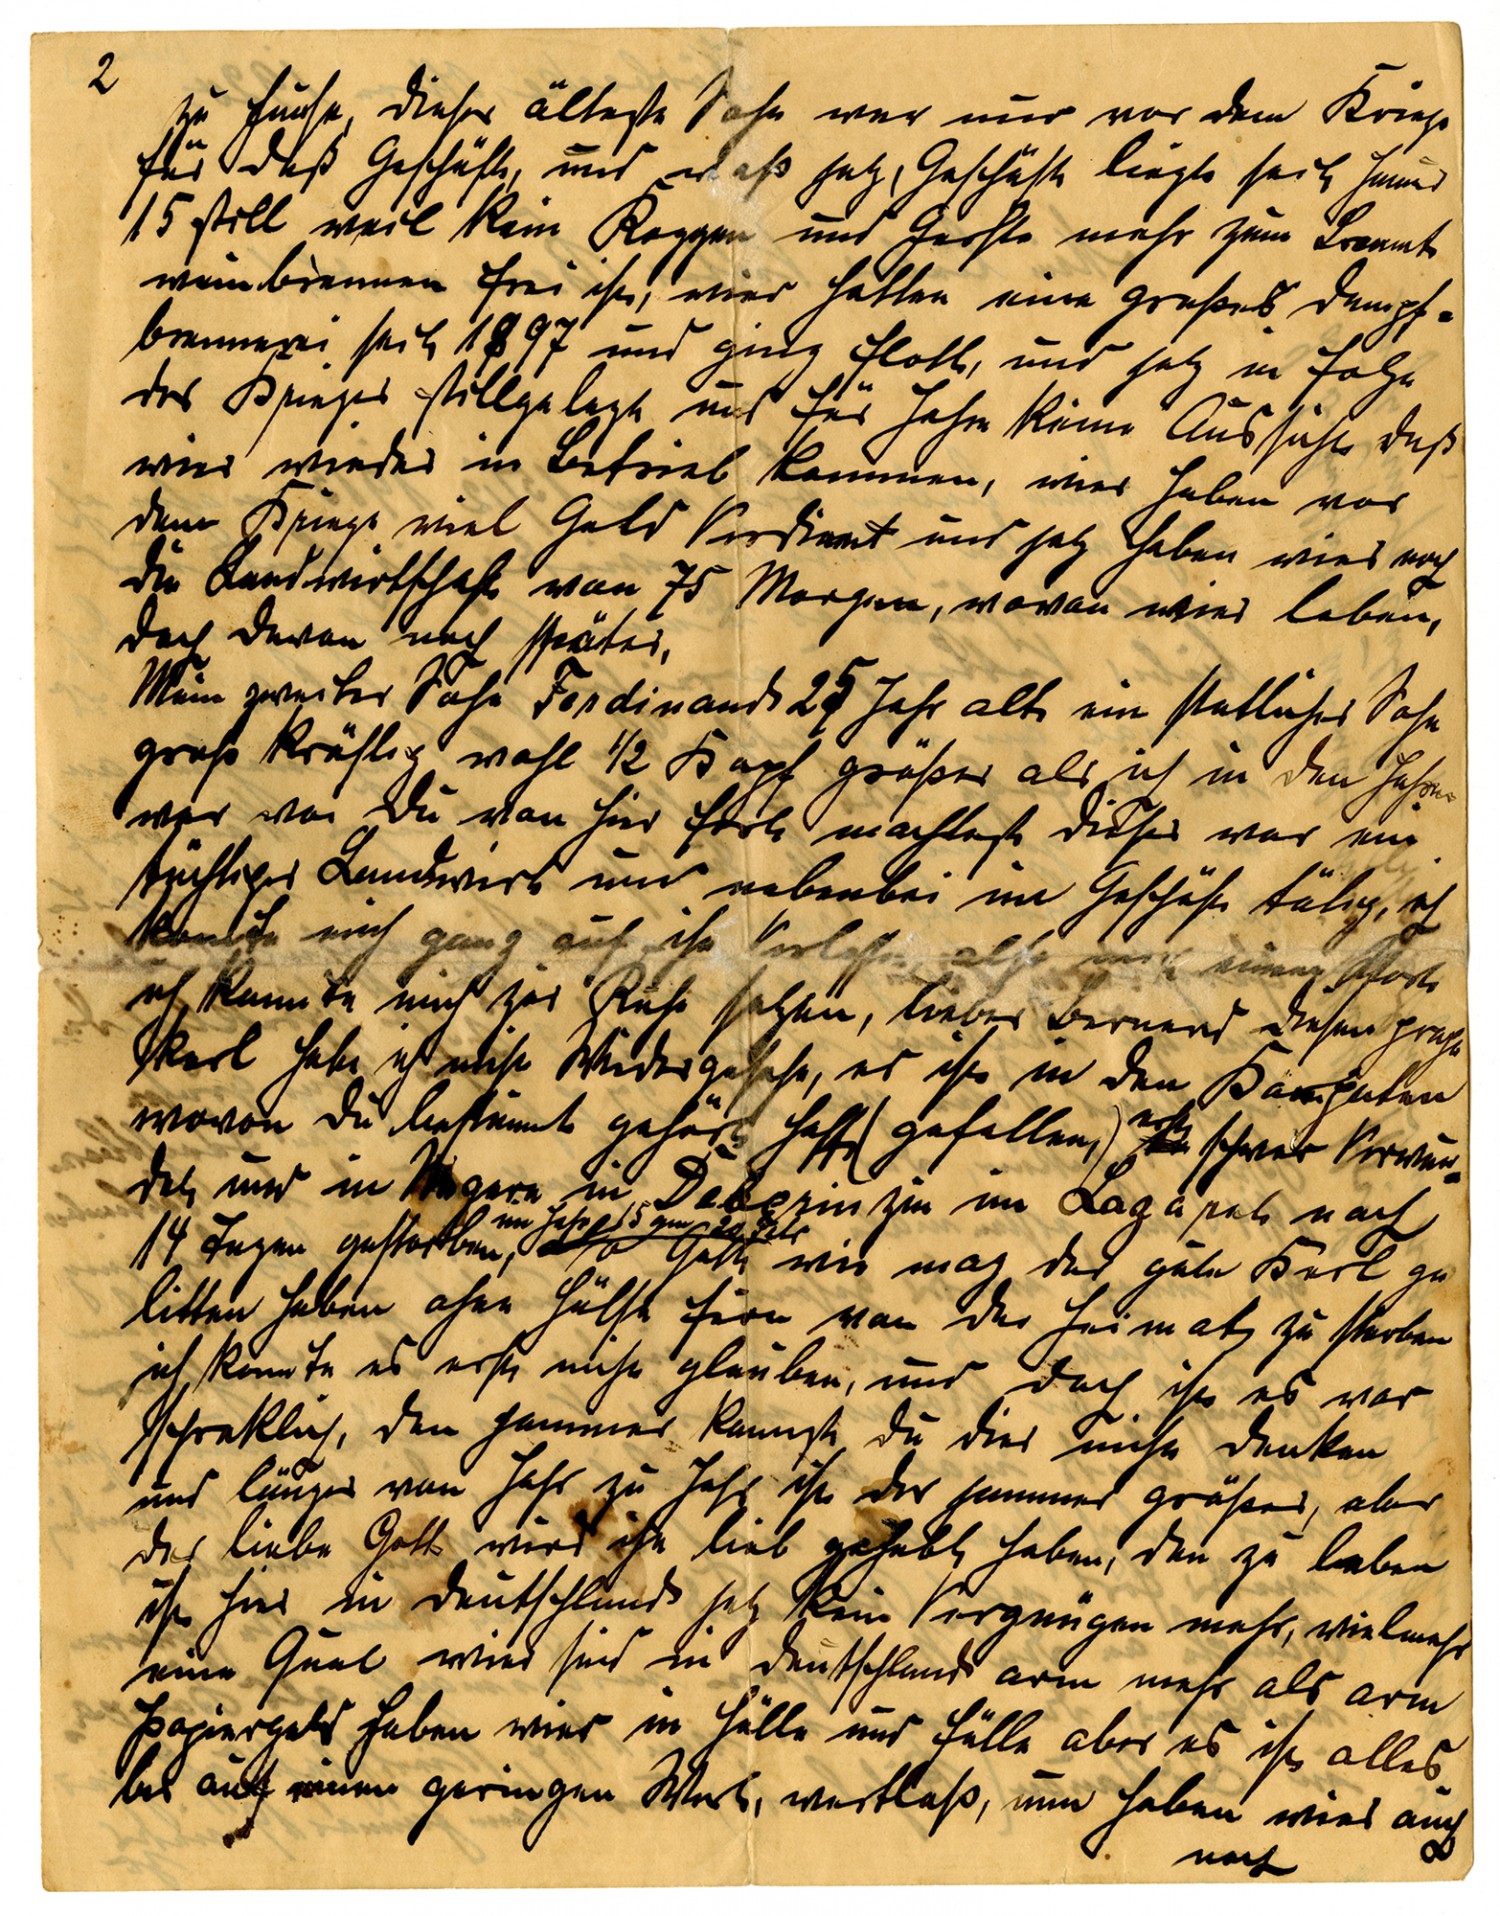 2
zu Hause, dieser älteste Sohn war nur vor dem Kriege
für daß Geschäft, und daß jetz, Geschäft liegt seit Januar
15 still weil kein Roggen und Gerste mehr zum Brannt
weinbrennen frei ist, wier hatten eine großes Dampf-
brennerei seit 1897 und ging flott, und jetz in folge
des Krieges stillgelegt und für Jahre keine Aussicht daß
wier wieder in Betrieb kommen, wier haben vor
dem Kriege viel Geld Verdient und jetz haben wier noch
die Landwirtschaft von 75 Morgen, wovon wier leben,
doch davon noch später,
Mein zweiter Sohn Ferdinand 25 Jahr alt ein statlicher Sohn
groß kräftig wohl 1/2 Kopf größer als ich in den Jahren
war wo Du von hier fort machtest dieser war ein
tüchtiger Landwirt und nebenbei im Geschäft tätig, ich
konnte mich ganz auf ihn Verlassen, also mit einem Wort
ich konnte mich zur Ruhe setzen, lieber Bernard diesen
Kerl habe ich nicht Wiedergesehe, er ist in den Karpaten
wovon Du bestimmt gehört hast (gefallen,) erst schwer Verwun-
det, und in Ungarn in Debrinzin im Lazaret nach
14 Tagen gestorben, im Jahr 15 o Gott wie mag der gute Kerl ge
litten haben ohne Hülfe fern von der Heimat zu sterben
ich konnte es erst nicht glauben, und doch ist es war
schreklich, den jammer kannst du dier nicht denken
und länger von Jahr zu Jahr ist der jammer größer, aber
der liebe Gott wird ihn lieb gehabt haben, den zu leben
ist hier in Deutschland jetz kein Vergnügen mehr, vielmehr
eine Qual wier sind in Deutschland arm mehr als arm
Papiergeld haben wier in hülle und fülle aber es ist alles
bis auf einen geringen Wert, wertlaß, nun haben wier auch
noch